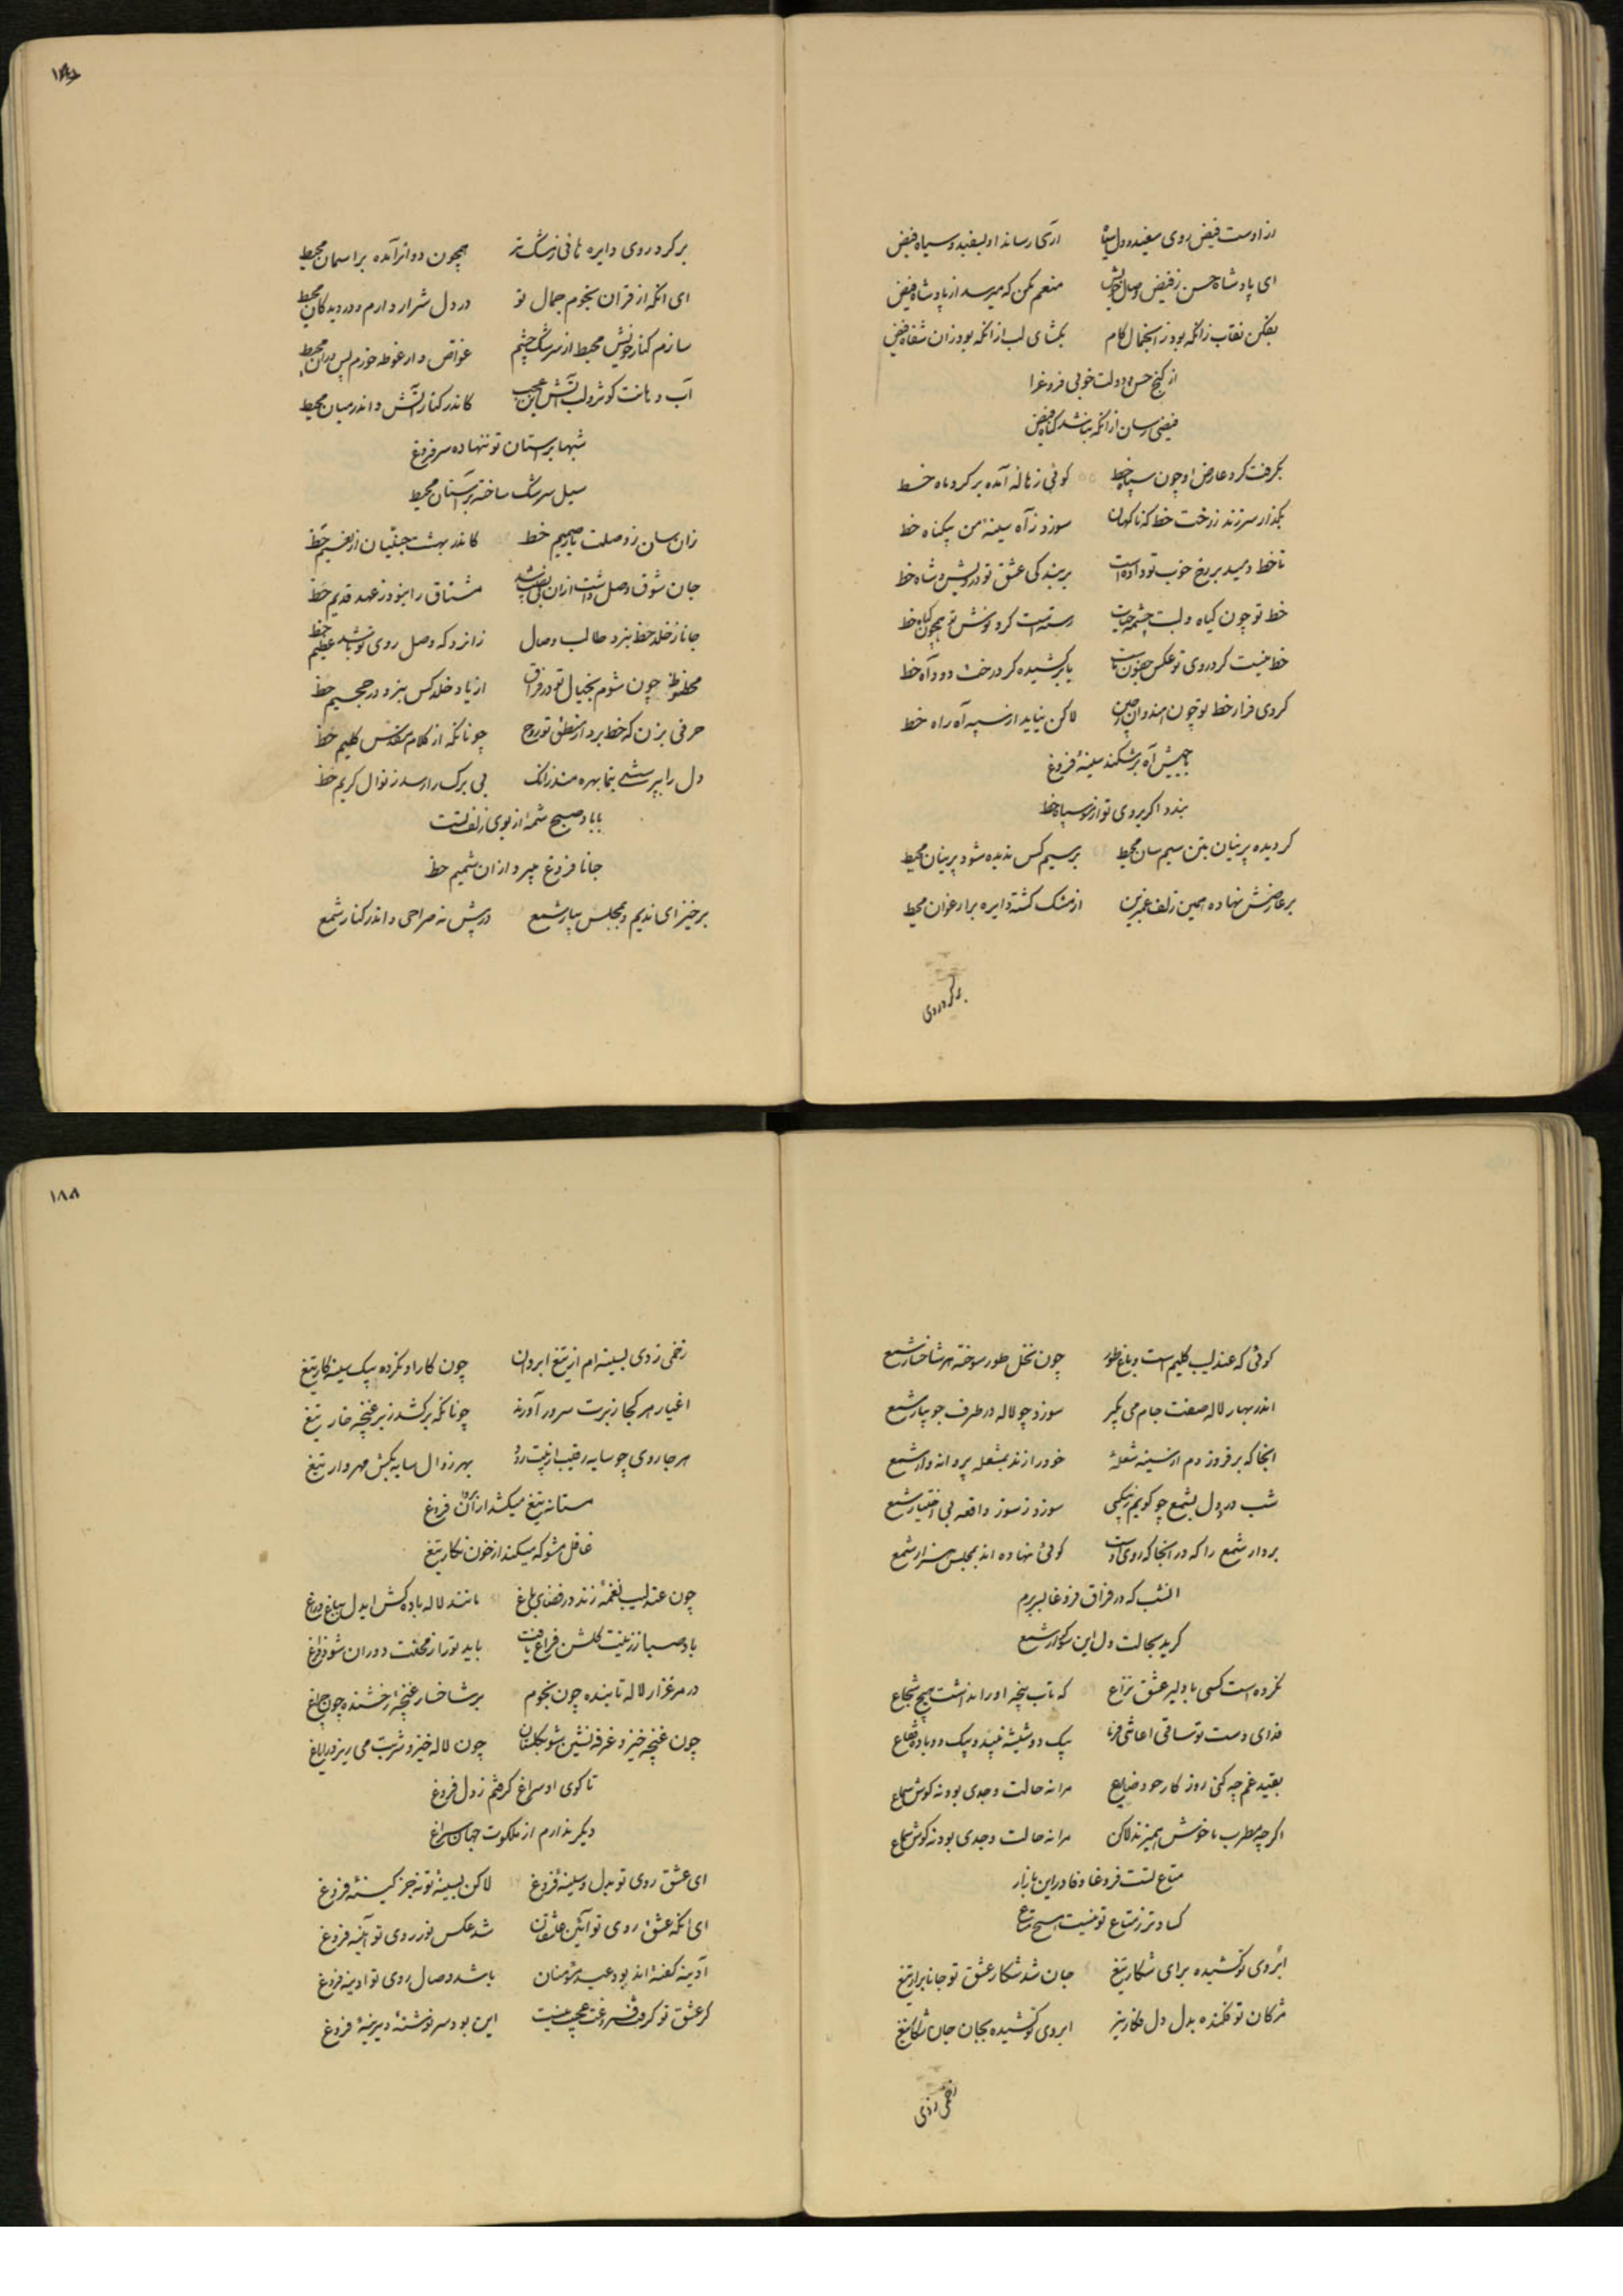 از اوست فیض روی سفید و دل سیاه اری رساند او بسفید و سیاه فیض
ای پادشاه حسن ز فیض وصال خویش منعم مکن که میرسد از پادشاه فیض
بفکن نقاب زانکه بود ز انجمال کام بکشای لب از انکه بود زان شفاه فیض
از کنج حسن و دولت خوبی فروغ را
فیضی رسان از انکه نباشد کناه فیض
بگرفت کرد عارض او چون سپاه خط کوئی ز هاله آمده بر کرد ماه خط
بگذار سر زند ز رخت خط که ناکهان سوزد ز آه سینهٔ من بیکناه خط
تا خط دمید بر رخ خوب تو داده است بر بندکی عشق تو درویش و شاه خط
خط تو چون کیاه و لبت چشمه حیات رسته است کرد نوشش تو همچون کیاه خط
خط نیست کرد روی تو عکس جفون ماست یا بر کشیده کرد رخت دود آه خط
کردی فراز خط تو چون هندوان چین لاکن نیاید از سپه آه راه خط
با جیش آه بر شکند سینهٔ فروغ
بندد اکر بروی تو از مو سپاه خط
کردیده پرنیان بتن سیم سان محیط بر سیم کس ندیده شود پرنیان محیط
بر عارضش نهاده همین زلف عنبرین از مشک کشته دایره بر ارغوان محیط
بر کرد روی
۱۸۷
بر کرد روی دایره هائی ز مشک تر همچون دوائر آمده بر اسمان محیط
ای انکه از قران نجوم جمال تو در دل شرار دارم و در دیدکان محیط
سازم کنار خویش محیط از سرشک چشم غواص وار غوطه خورم پس دران محیط
آب دهانت کوثر و لب آتش این عجب کاندر کنار آتش و اندر میان محیط
شبها بر استان تو ننهاده سر فروغ
سیل سرشک ساخته بر آستان محیط
زان سان ز وصلت یار صمیم خط کاندر بهشت جنتیان از نعیم حظ
جان شوق وصل داشت ازان بی نصیب شد مشتاق را نبود ز عهد قدیم حظ
جانا ز خلد حظ نبرد طالب وصال زانرو که وصل روی تو باشد عظیم حظ
محظوظ چون شوم بخیال تو در فراق از یاد خلد کس نبرد در جحیم حظ
حرفی بزن که حظ برد از نطق تو روح چونانکه از کلام مقدس کلیم حظ
دل را بپرسشی بنما بهره مند زانک بی برک را رسد ز نوال کریم حظ
با باد صبح شمهٔ از بوی زلف تست
جانا فروغ میبرد ازان شمیم حظ
برخیز ای ندیم و بمجلس بیار شمع در پیش نه صراحی و اندر کنار شمع
کوئی که عندلیب کلیم است و باغ طور چون نخل طور سوخته هر شاخسار شمع
اندر بهار لاله صفت جام می بگیر سوزد چو لاله در طرف جویبار شمع
انجا که بر فروزدم از سینه شعلهٔ خود را زند بشعله پروانه وار شمع
شب درد دل بشمع چو کویم ز بیکسی سوزد ز سوز واقعه بی اختیار شمع
بردار شمع را که در انجا که روی اوست کوئی نهاده اند بمجلس هزار شمع
انشب که در فراق فروغا بسر برم
کرید بحالت دل این سوکوار شمع
نکرده است کسی با دلیر عشق نزاع که تاب پنجه او را نداشت هیچ شجاع
فدای دست تو ساقی اعاشنی فرما بیک دو شیشه نبیذ و بیک دو باده فقاع
بقید غم چه کنی روزکار خود ضایع مرا نه حالت وجدی بود نه کوش سماع
اکرچه مطرب ما خوش همیزند لاکن مرا نه حالت وجدی بود نه کوش سماع
متاع تست فروغا وفا در این بازار
کسادتر ز متاع تو نیست هیچ متاع
ابروی تو کشیده برای شکار تیغ جان شد شکار عشق تو جانا برار تیغ
مژکان تو فکنده بدل دل فکار تیر ابروی تو کشیده بجان جان شکار تیغ
زخمی زدی
۱۸۸
زخمی زدی بسینه ام از تیغ ابروان چون کار او نکرده بیک سینه کار تیغ
اغیار هر کجا ز برت سر در آورند چونانکه بر کشد ز بر غنچه خار تیغ
هر جا روی چو سایه رقیب از پیت رود بهر زوال سایه بکش مهر وار تیغ
مستانه تیغ میکشد از ابروان فروغ
غافل مشو که میکند از خون نکار تیغ
چون عندلیب نغمه زند در فضای باغ مانند لاله باده کش ایدل بباغ و راغ
باد صبا ز زینت کلشن فراغ یافت باید تو را ز محنت دوران شود فراغ
در مرغزار لاله تابنده چون نجوم بر شاخسار غنچهٔ رخشنده چون چراغ
چون غنچه خیز و غرفه نشین شو بکلستان چون لاله خیز و شربت می ریز در ایاغ
تا کوی او سراغ کرفتم ز دل فروغ
دیکر ندارم از ملکوت جهان سراغ
ای عشق روی تو بدل و سینهٔ فروغ لاکن بسینهٔ تو نه جز کینهٔ فروغ
ای انکه عشق روی تو آئین عاشقان شد عکس نور روی تو آئینه فروغ
آدینه کفته اند بود عید مؤمنان باشد وصال روی تو ادینه فروغ
کر عشق تو کرفت فروغت عجیب نیست این بود سرنوشتهٔ دیرینهٔ فروغ